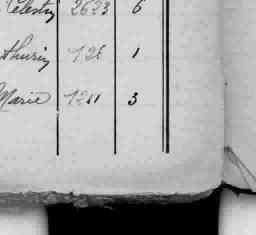 Celestin 2623 6
thurin 126 1
Marie 1211 3